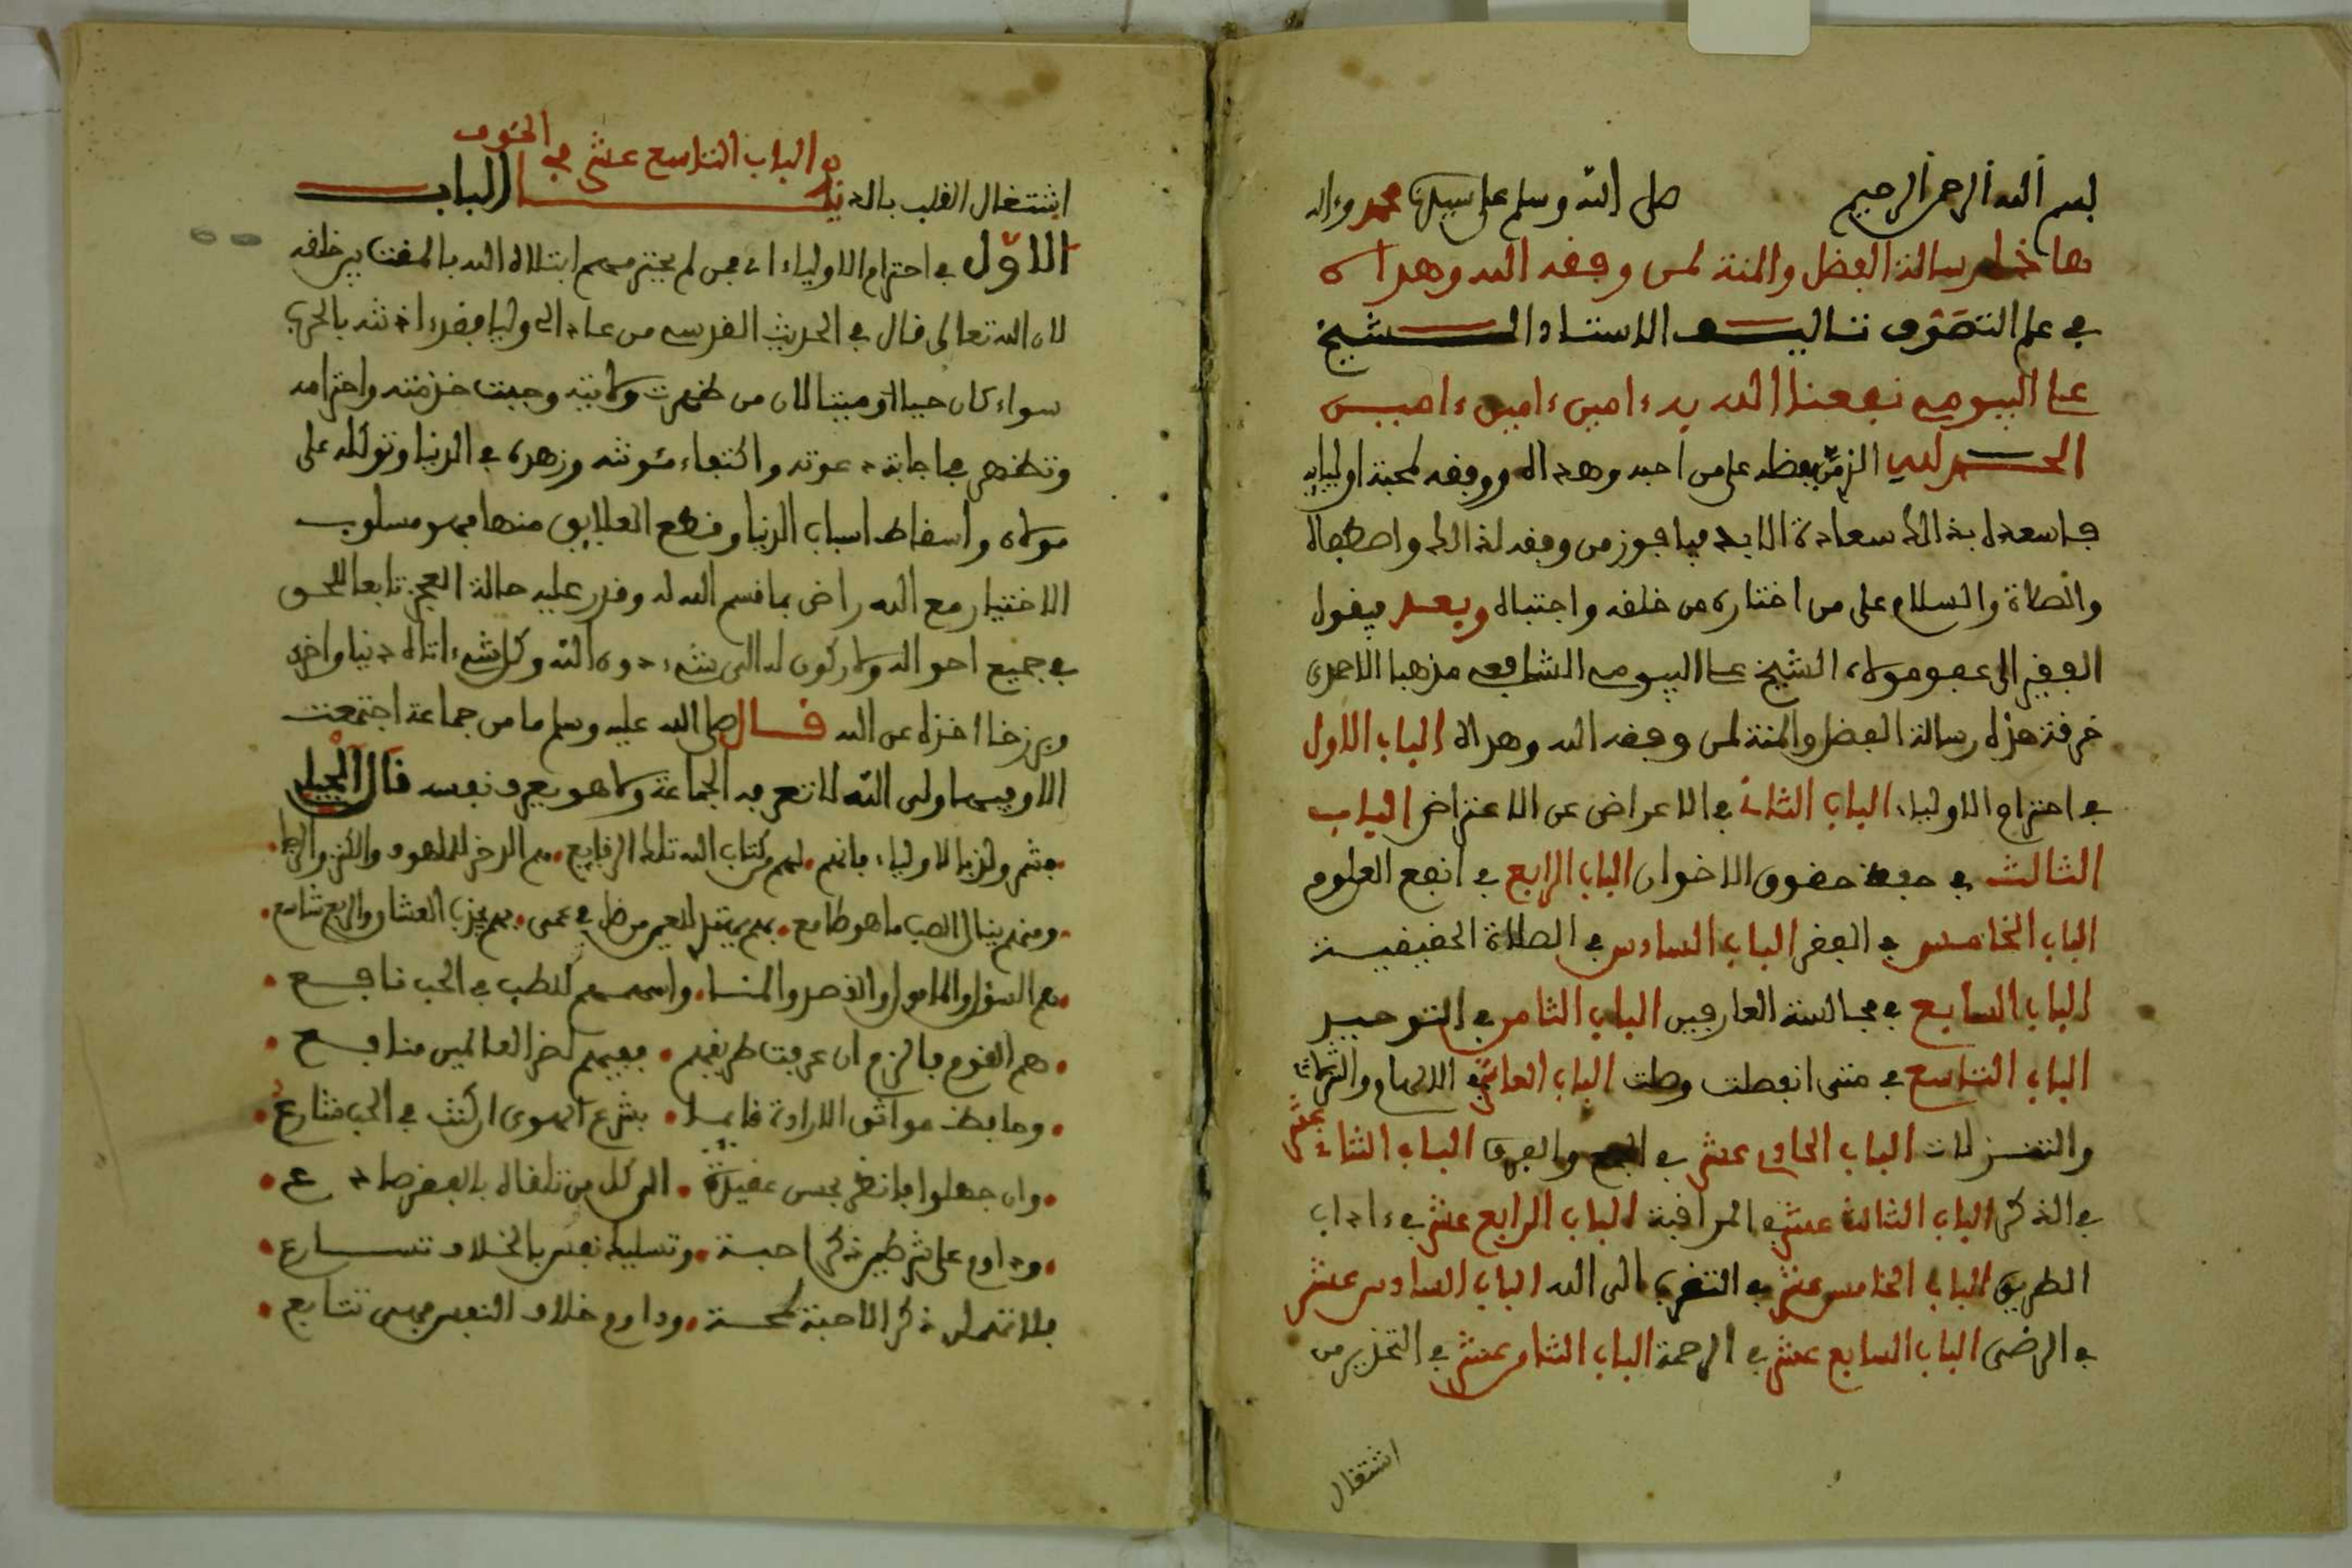 بسم الله الرحمن الرحيم صلى الله وسلم على سيدنا محمد وءاله
رسالة الفضل والمنة لمن وفقه الله وهداه
في علم التصوف تاليف الاستاذ الشيخ
على البيومي نفعنا الله به ءامين ءامين ءامين
الحمد لله الذى من بفضله على من احبه وهداه ووفقه لمحبة اوليايه
فاسعده بذالك سعادة الابد فيا فوز من وفقه لذالك واصطفاه
والصلاة والسلام على من اختاره من خلقه واجتباه وبعد فيقول
الفقير الى عفو مولاه الشيخ على البيومي الشافعي مذهبا الاحمدى
خرقة هذه رسالة الفضل والمنة لمن وفقه الله وهداه الباب الاول
في احترام الاولياء الباب الثانى في الاعراض عن الاعتراض الباب
الثالث في حفظ حقوق الاخوان الباب الرابع في انفع العلوم
الباب الخامس في الفقر الباب السادس في الصلاة الحقيقية
الباب السابع في مجالسة العارفين الباب الثامن في التوحيد
الباب التاسع في متى انفصلت وصلت الباب العاشر في الالهام
والتنزلات الباب الحادى عشر في الجمع والفرق الباب الثانى عشر
في الذكر الباب الثالث عشر في المراقبة الباب الرابع عشر في ءاداب
الطريق الباب الخامس عشر في التقرب الى الله الباب السادس عشر
في الرضى الباب السابع عشر في الرحمة الباب الثامن عشر في التحذير من
اشتغال
الباب التاسع عشر في الخوف
اشتغال القلب بالدنيا الباب
الاول في احترام الاولياء اى فمن لم يحترمهم ابتلاه الله بالمقت بين خلقه
لان الله تعالى قال في الحديث القدسى من عادى لى وليا فقد ءاذنته بالحرب
سواء كان حيا او ميتا لان من ظهرت ولايته وجبت خدمته واحترامه
وتظهر في اجابة دعوته واكتفاء مئونته وزهده في الدنيا وتوكله على
مولاه واسقاط اسباب الدنيا وقطع العلايق منها فهو مسلوب
الاختيار مع الله راض بما قسم الله له وقدر عليه حالة العجز تابعا للحق
في جميع احواله ولا ركون له الى شىء دون الله وكل شىء اتاه دنيا واخرى
وبرزخا اخذه عن الله قال صلى الله عليه وسلم ما من جماعة اجتمعت
الا وفيهم ولى الله لا تعرفه الجماعة ولا هو يعرف نفسه قال الجيلى
فشمر ولذ بالاولياء فانهم لهم من كتاب الله تلك الوقايع هم الذخر للملهوف والكنز والرجا
ومنهم ينال الصب ما هو طامع بهم يهتدى للعين من ضل في عمى بهم يجذب العشاق والربع شاسع
هم السؤل والمامول والقصد والمنا واسمهم للصب في الحب نافع
هم القوم فالزم ان عرفت طريقهم ففيهم لضر العالمين منافع
وحافظ مواثق الارادة قايما بشرع الهوى ان كنت في الحب شارع
وان جهلوا فانظر بحسن عقيدة الى كل من تلقاه بالفقر صادع
وداوم على شرطين ذكر احبة وتسليك نفس بالخلاف تسارع
فلا تهملن ذكر الاحبة لمحة وداوم خلاف النفس فهى تتابع